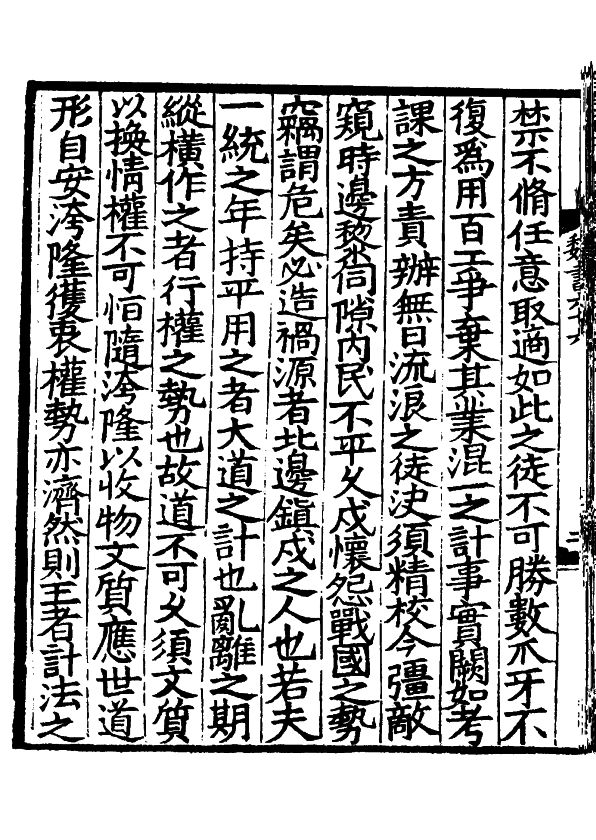 禁不脩任意取適如此之徒不可勝數爪牙不
復爲用百工爭棄其業混一之計事實闕如考
課之方責辦無日流浪之徒決須精校今彊敵
窺時邊黎伺隙內民不平久戍懷怨戰國之勢
竊謂危矣必造禍源者北邊鎮戍之人也若夫
一統之年持平用之者大道之計也亂離之期
縱橫作之者行權之勢也故道不可久須文質
以換情權不可恒隨洿隆以收物文質應世道
形自安洿隆獲衷權勢亦濟然則王者計法之